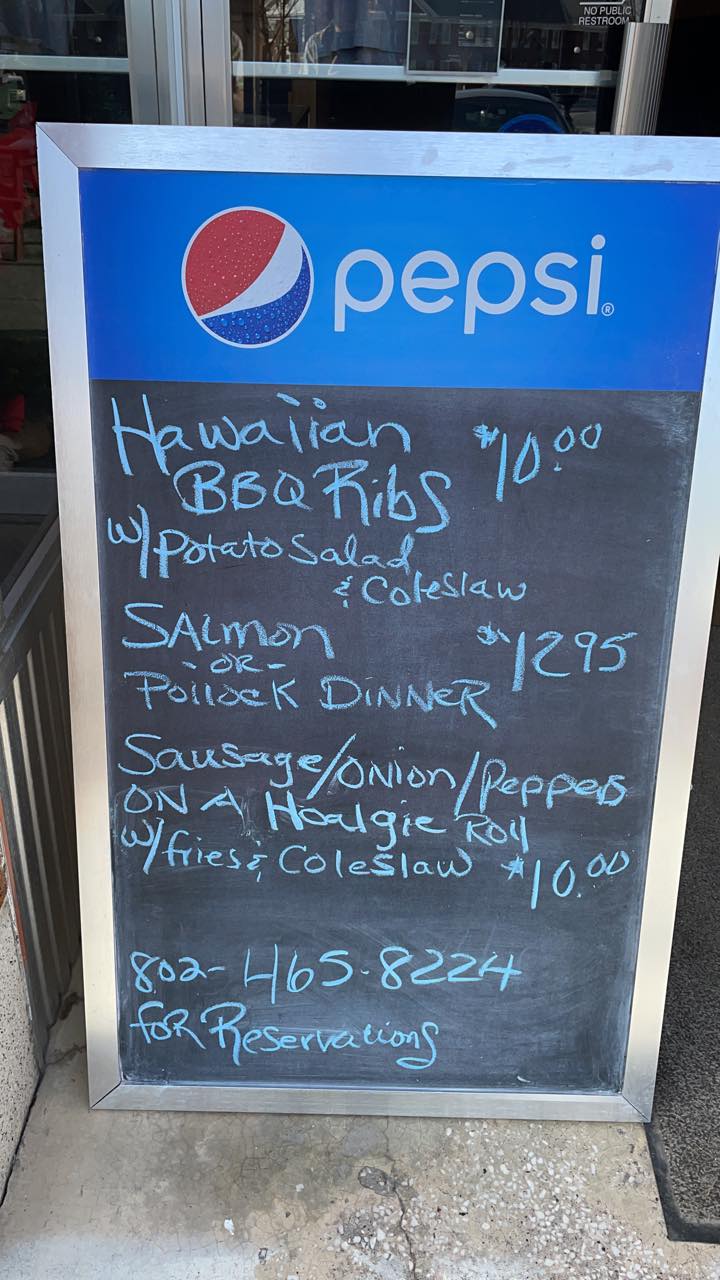 NO PUBLIC
RESTROOM
pepsi®
Hawaiian $10.00
BBQ Ribs
w/Potato Salad
& Coleslaw
SALmon $1295
-OR-
Pollock DINNER
Sausage/ONion/Peppers
ON A Hoalgie Roll
w/fries & Coleslaw $10.00
802-465-8224
foR Reservations